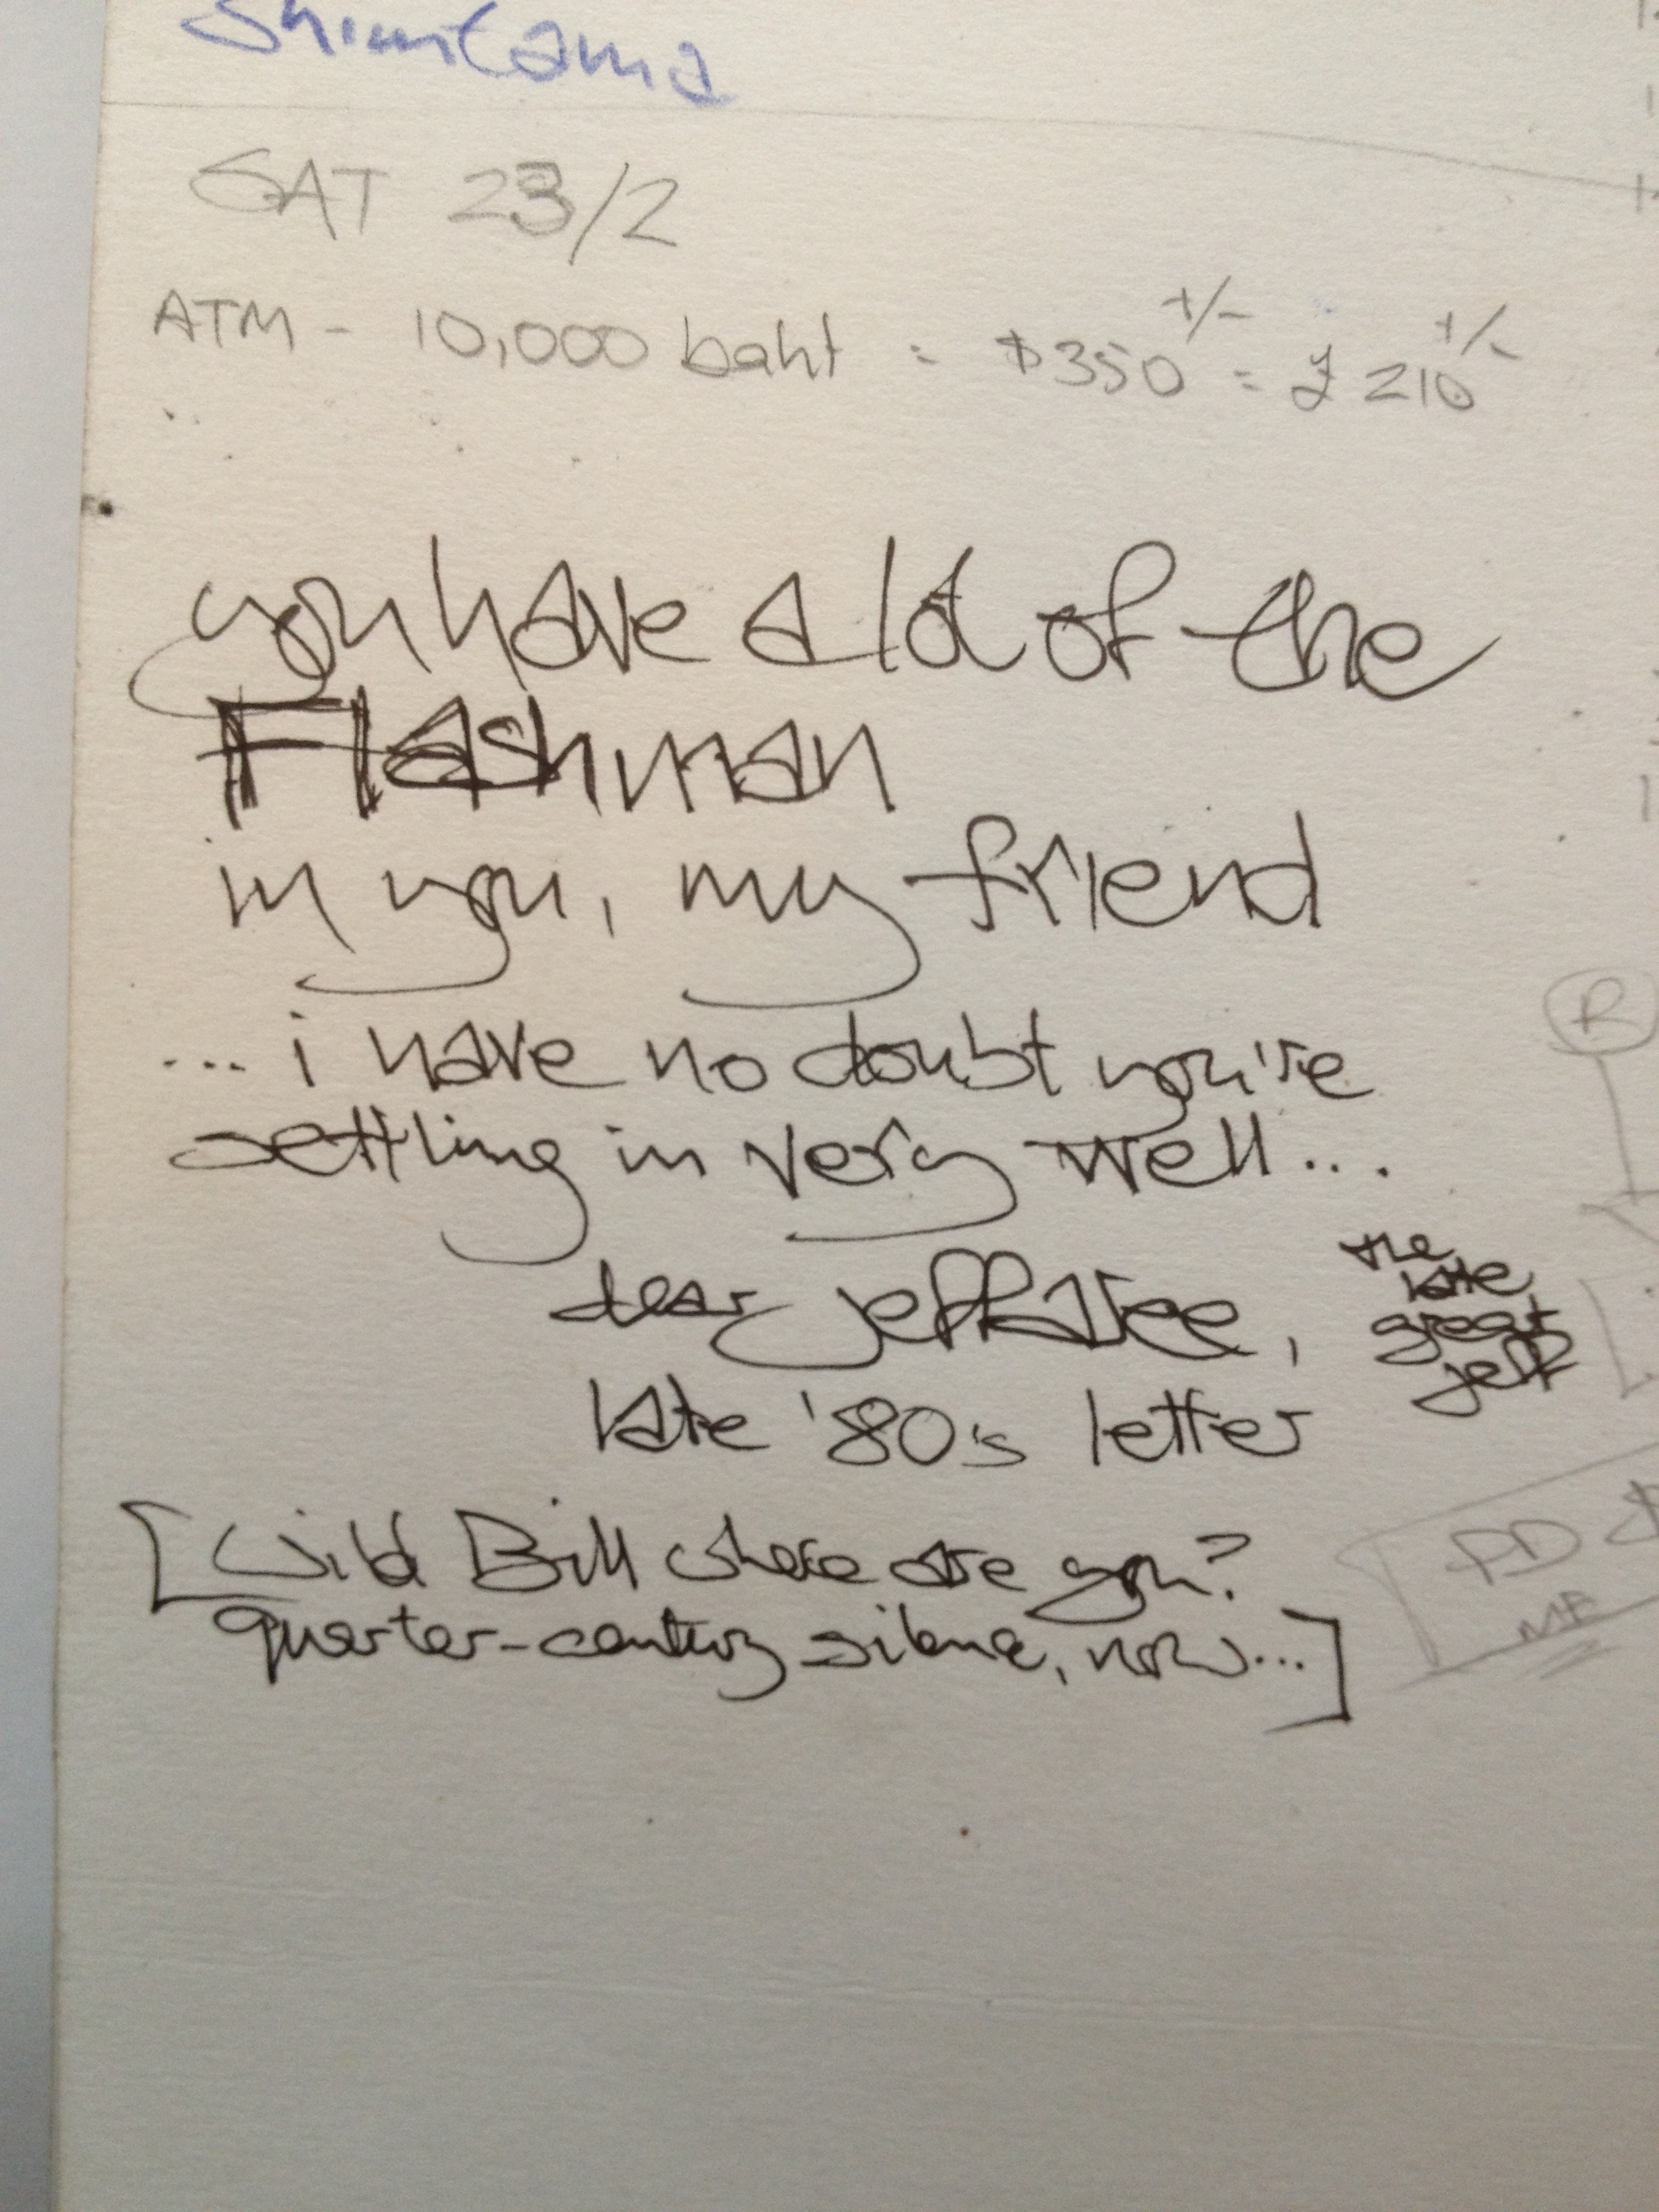 SAT 23/2
ATM - 10,000 baht = $350 +/- = £210 +/-
you have a lot of the
Flashman
in you, my friend
... i have no doubt you're
settling in very well...
dear jeffaree,
the
late,
great
jeff
late '80's letter
[Wild Bill where are you?
quarter-century silence, now...]
R
PD $
ME